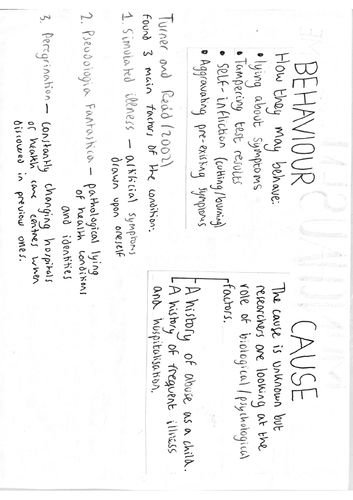 BEHAVIOUR
How they may behave:
• lying about symptoms
• Tampering test results
• Self-infliction (cutting/burning)
• Aggravating pre-existing symptoms
Turner and Reid (2002)
found 3 main factors of the condition:
1. Simulated illness – artificial symptoms
drawn upon oneself
2. Pseudologia Fantastica – pathological lying
of health conditions
and identities
3. Peregrination – constantly changing hospitals
or health care centres when
discovered in previous ones.
CAUSE
The cause is unknown but
researchers are looking at the
role of biological/psychological
factors.
A history of abuse as a child.
A history of frequent illness
and hospitalisation.